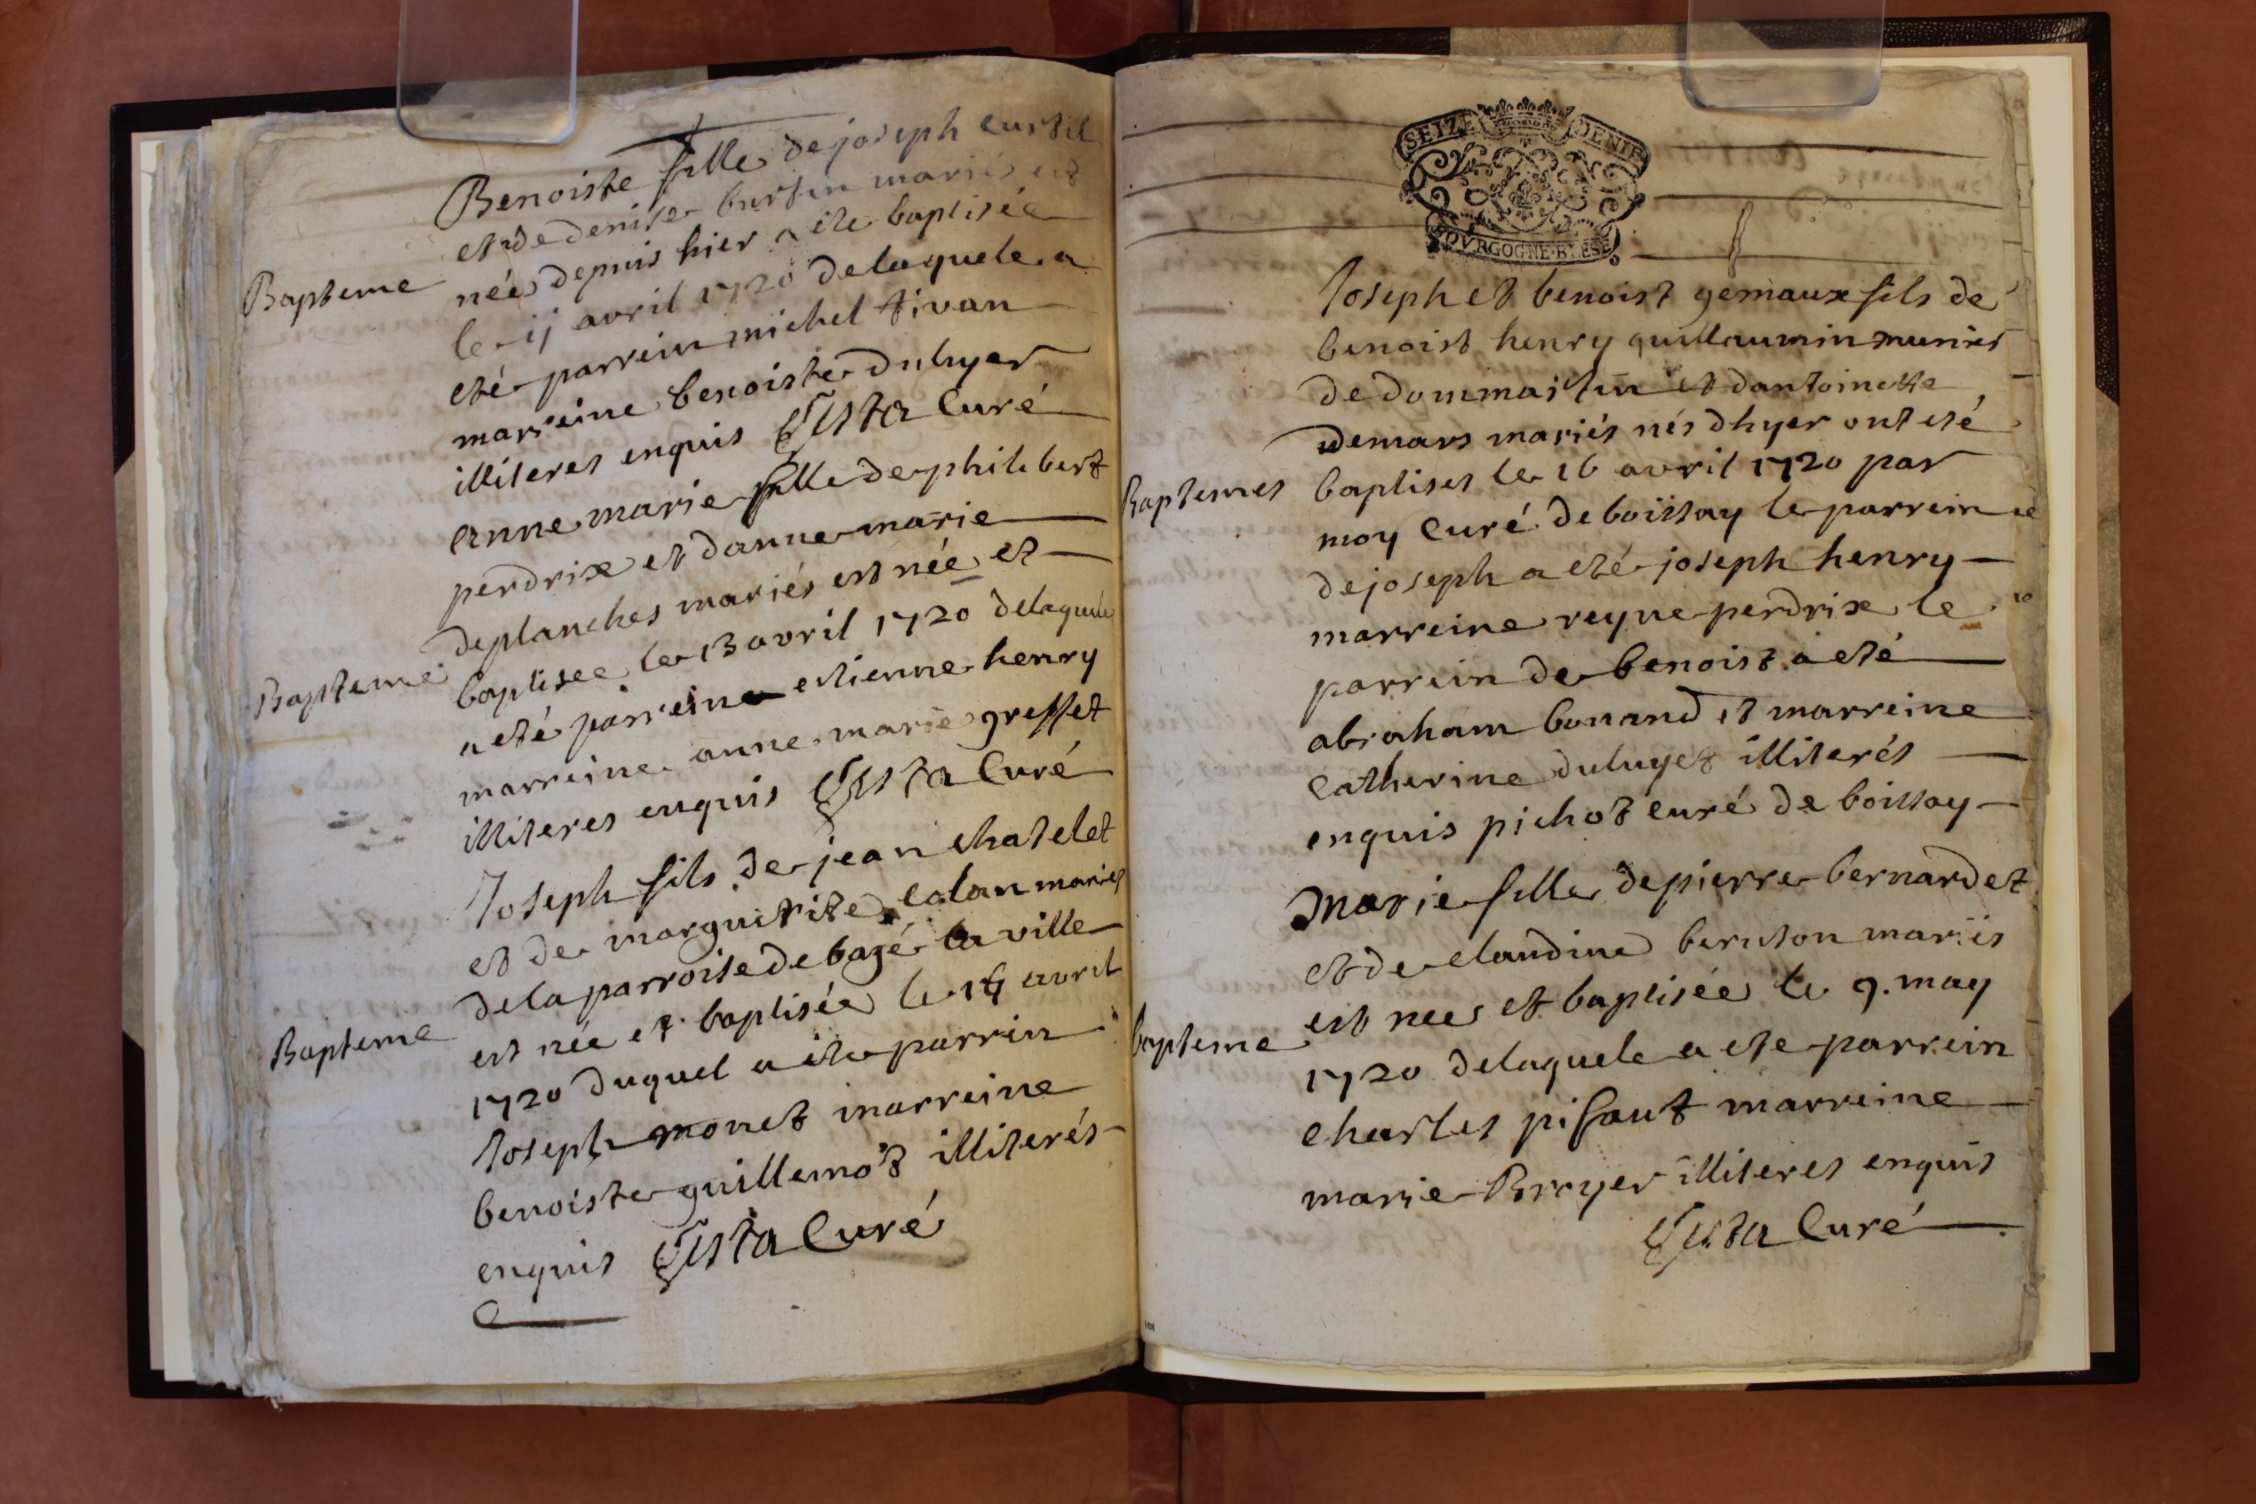 Benoiste fille de joseph curtil
et de denise burtin mariés est
née depuis hier a ete baptisée
Bapteme
le 11 avril 1720 de laquele a
eté parrein michel tivan
marreine benoiste duhyer
illiteres enquis Curé
anne marie fille de philibert
perdrix et danne marie
deplanches mariés est née et
baptisee le 13 avril 1720 delaquele
Bapteme
a eté parreine etienne henry
marreine anne marie greffet
illiteres enquis Curé
Joseph fils de jean chatelet
et de marguerite calan mariés
de la parroise de bagé la ville
est née et baptisée le avril
Bapteme
1720 duquel a ete parrein
Joseph monet marreine
benoiste guillemot illiterés
enquis Curé
SEIZE DENIE
BOVRGOGNE BRESSE
Joseph et benoist gemaux fils de
benoist henry guillaumin munier
de dommartin et dantoinette
demars mariés nés dhyer ont eté
baptises le 16 avril 1720 par
Baptemes
moy curé de boissay le parrein
de joseph a eté joseph henry
marreine reyne perdrix le
parrein de benoist a eté
abraham bonand et marreine
catherine duluyet illiterés
enquis pichot curé de boissay
Marie fille de pierre bernardet
et de claudine beruson mariés
est nee et baptisée le 9. may
bapteme
1720 delaquele a ete parrein
charles pifaut marreine
marie Broyer illiteres enquis
Curé